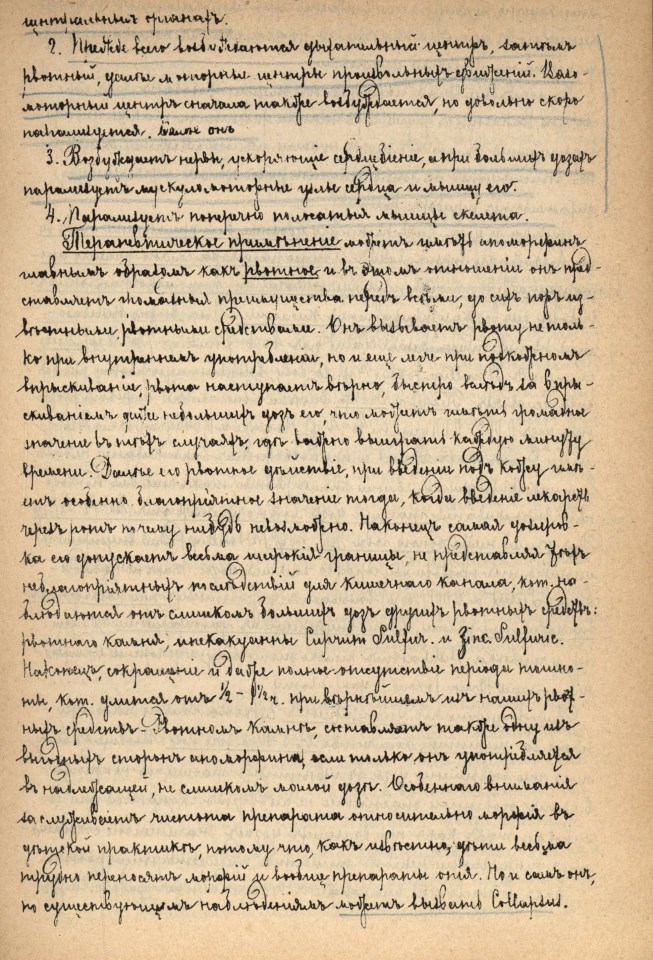 центральныхъ органахъ.
2. Прежде всего возбуждаются дыхательный центръ, затѣмъ
рвотный, далѣе моторные центры произвольныхъ движеній. Вазо-
моторный центръ сначала также возбуждается, но довольно скоро
парализуется.
3. Возбуждаетъ нервы, ускоряющіе сердцебіеніе, а при большихъ дозахъ
парализуетъ мускуломоторные узлы сердца и мышцу его.
4. Парализуетъ поперечно полосатыя мышцы скелета.
Терапевтическое примѣненіе можетъ имѣть апоморфинъ
главнымъ образомъ какъ рвотное и въ этомъ отношеніи онъ пред-
ставляетъ громадныя преимущества передъ всѣми, до сихъ поръ из-
вѣстными рвотными средствами. Онъ вызываетъ рвоту не толь-
ко при внутреннемъ употребленіи, но и еще легче при подкожномъ
впрыскиваніи, рвота наступаетъ вѣрно, быстро вслѣдъ за впры-
скиваніемъ даже небольшихъ дозъ его, что можетъ имѣть громадное
значеніе въ тѣхъ случаяхъ, гдѣ важно выиграть каждую минуту
времени. Далѣе его рвотное дѣйствіе, при введеніи подъ кожу имѣ-
етъ особенно благопріятное значеніе тогда, когда введеніе лекарствъ
черезъ ротъ почему нибудь невозможно. Наконецъ самая дозиров-
ка его допускаетъ весьма широкія границы, не представляя тѣхъ
неблагопріятныхъ послѣдствій для кишечнаго канала, кот. на-
блюдаются отъ слишкомъ большихъ дозъ другихъ рвотныхъ средствъ:
рвотнаго камня, ипекакуанны Cuprum Sulfur. и Zinc. Sulfuric.
Наконецъ, сокращеніе и даже полное отсутствіе періода тошно-
ты, кот. длится отъ 1/2 – 1 1/2 ч. при вѣрнѣйшемъ изъ нашихъ рвот-
ныхъ средствъ – Рвотномъ камнѣ, составляетъ также одну изъ
выгодныхъ сторонъ апоморфина, если только онъ употребляется
въ надлежащей, не слишкомъ малой дозѣ. Особеннаго вниманія
заслуживаетъ чистота препарата относительно морфія въ
дѣтской практикѣ, потому что, какъ извѣстно, дѣти весьма
трудно переносятъ морфій и вообще препараты опія. Но и самъ онъ,
по существующимъ наблюденіямъ можетъ вызвать Collapsus.